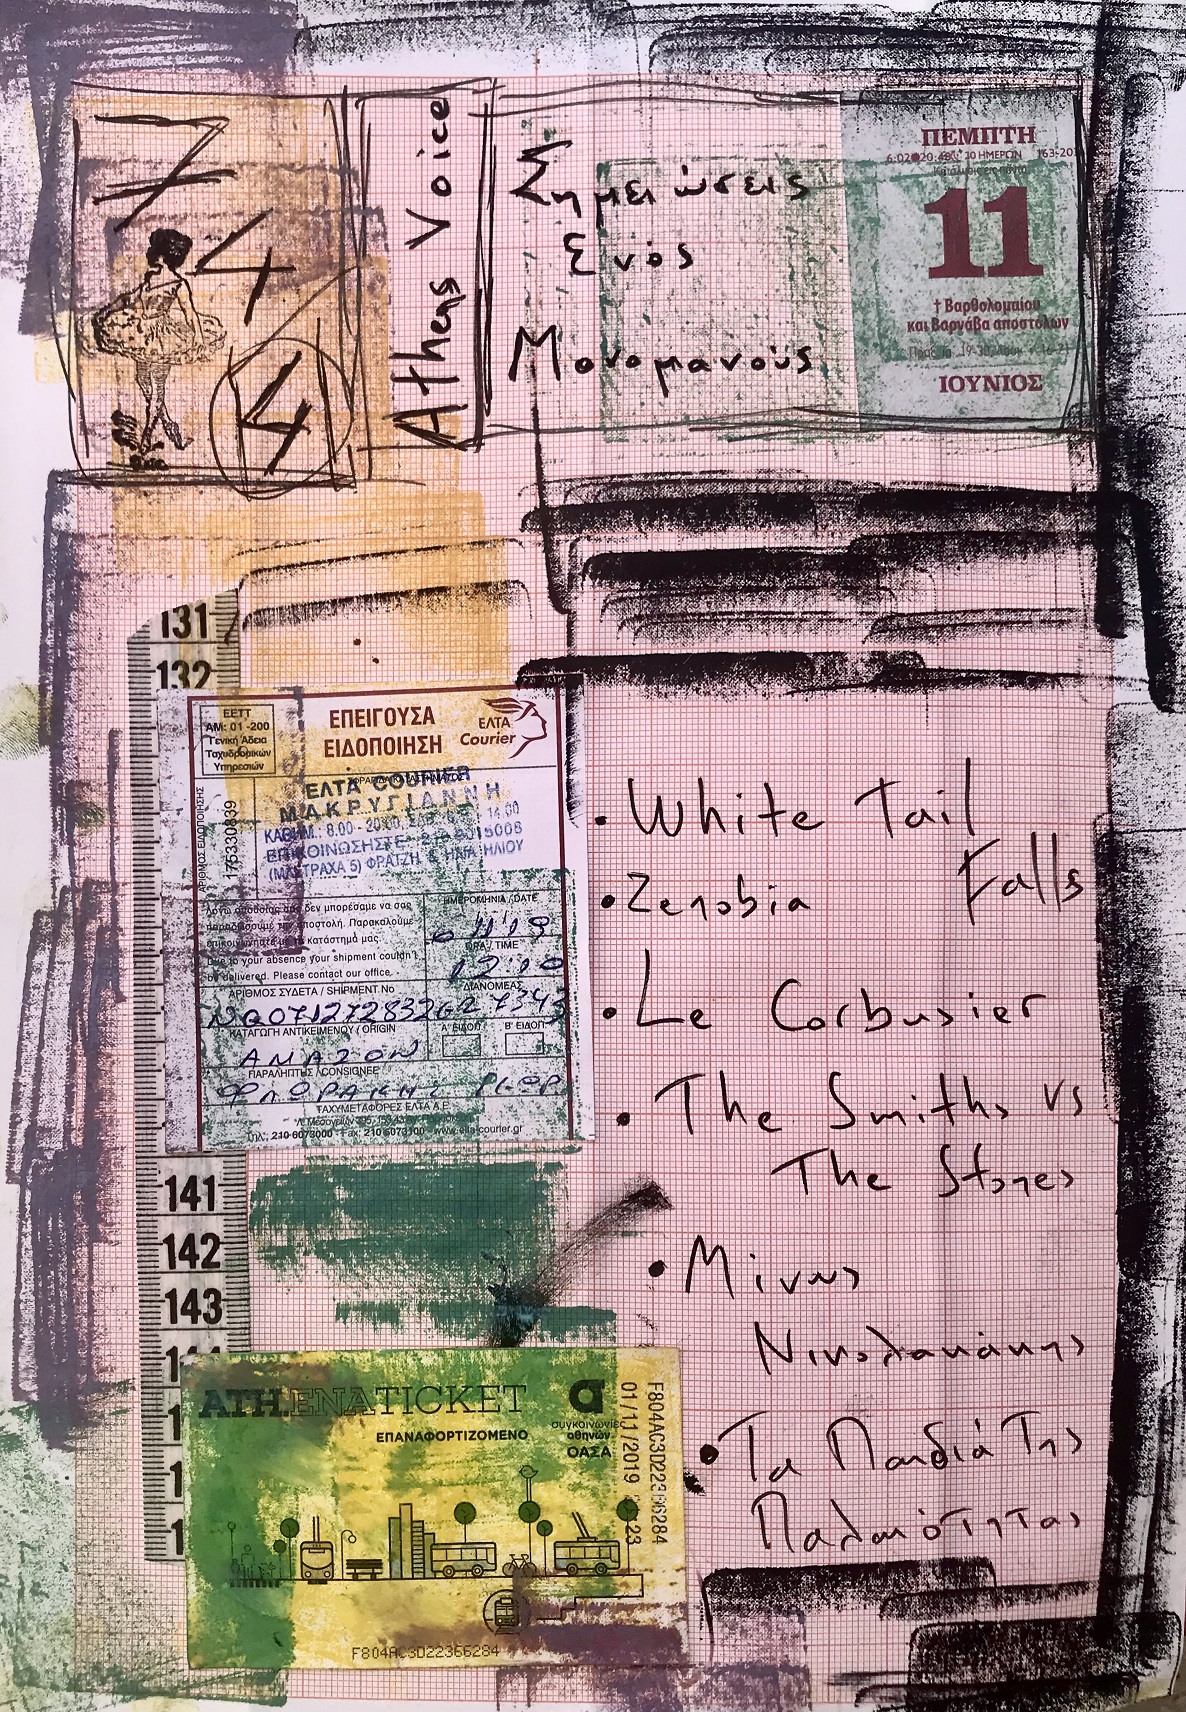 7
4
4
Athens Voice
Σημειώσεις
Ενός
Μονομανούς
ΠΕΜΠΤΗ
11
† Βαρθολομαίου
και Βαρνάβα αποστόλων
ΙΟΥΝΙΟΣ
131
132
ΕΕΤΤ
ΑΜ: 01-200
Γενική Άδεια
Ταχυδρομικών
Υπηρεσιών
ΕΠΕΙΓΟΥΣΑ
ΕΙΔΟΠΟΙΗΣΗ
ΕΛΤΑ
Courier
ΕΛΤΑ COURIER
ΜΑΚΡΥΓΙΑΝΝΗ
ΑΡΙΘΜΟΣ ΕΙΔΟΠΟΙΗΣΗΣ
175330839
Λόγω απουσίας σας δεν μπορέσαμε να σας
παραδώσουμε την αποστολή. Παρακαλούμε
επικοινωνήστε με το κατάστημά μας.
Due to your absence your shipment couldn't
be delivered. Please contact our office.
ΗΜΕΡΟΜΗΝΙΑ / DATE
ΩΡΑ / TIME
12:10
ΑΡΙΘΜΟΣ ΣΥΔΕΤΑ / SHIPMENT No
ΔΙΑΝΟΜΕΑΣ
ΚΑΤΑΓΩΓΗ ΑΝΤΙΚΕΙΜΕΝΟΥ / ORIGIN
Α' ΕΙΔΟΠ.
Β' ΕΙΔΟΠ.
ΑΜΑΖΟΝ
ΠΑΡΑΛΗΠΤΗΣ / CONSIGNEE
ΤΑΧΥΜΕΤΑΦΟΡΕΣ ΕΛΤΑ Α.Ε.
Τηλ.: 210-6073000 - Fax: 210-6073100 - www.elta-courier.gr
• White Tail
Falls
• Zenobia
• Le Corbusier
• The Smiths vs
The Stones
• Μίνως
Νικολακάκης
• Τα Παιδιά Της
Παλαιότητας
141
142
143
ATH.ENA TICKET
ΕΠΑΝΑΦΟΡΤΙΖΟΜΕΝΟ
συγκοινωνίες
αθηνών
ΟΑΣΑ
01/11/2019
F804AC3D22366284
F804AC3D22366284